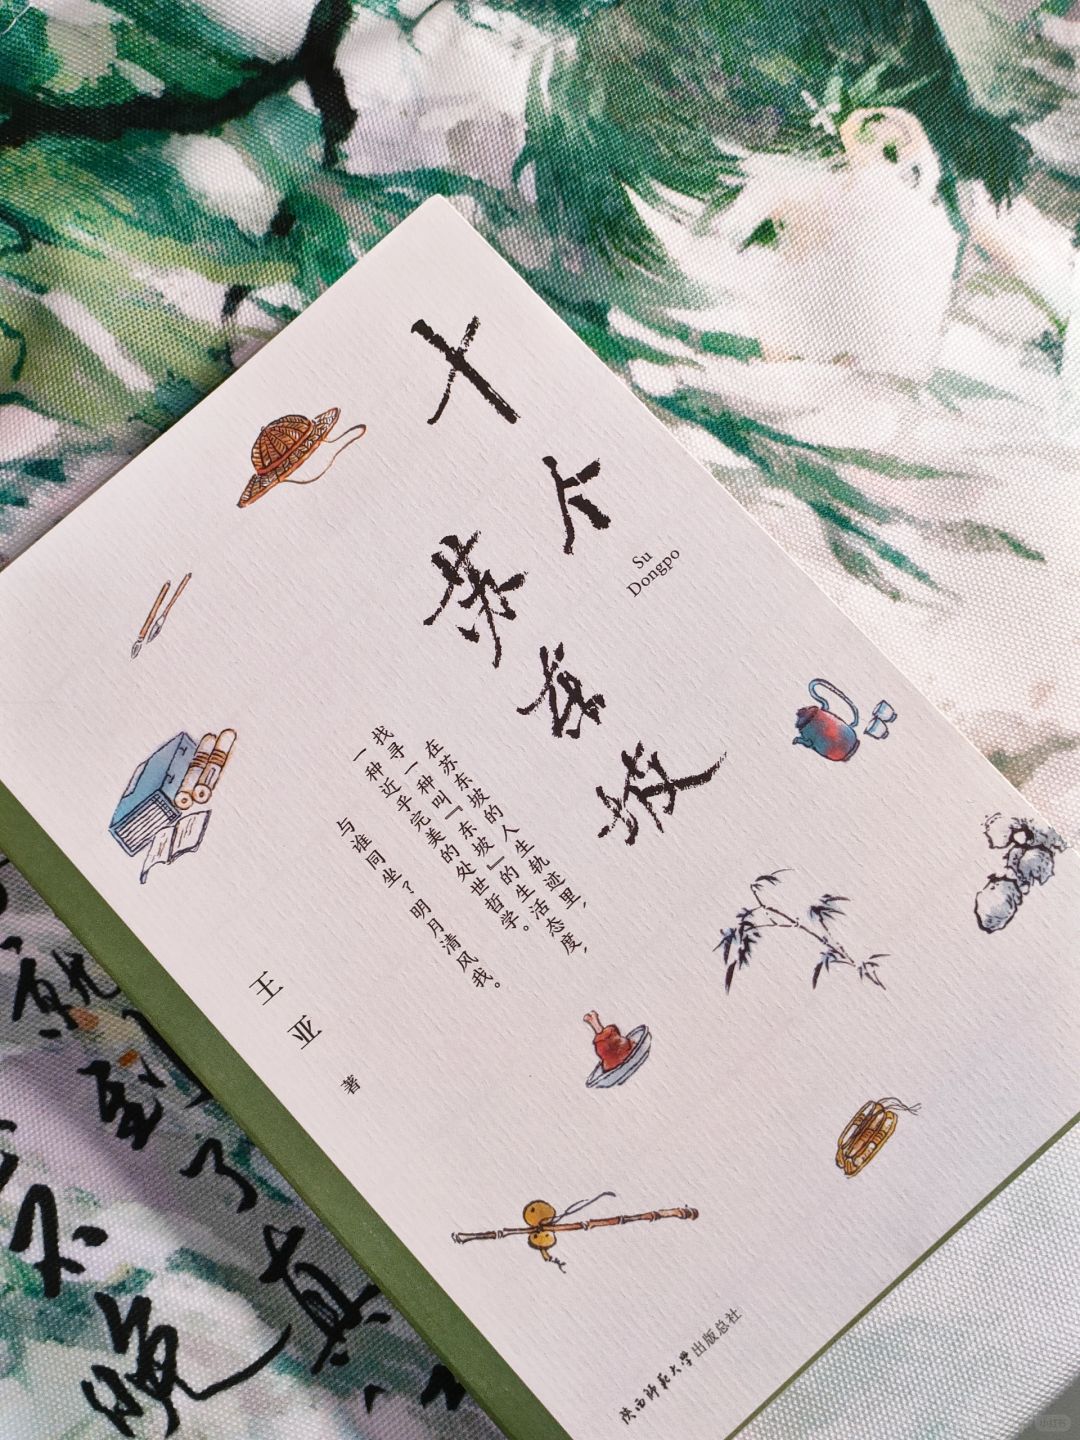 十个
苏东坡
Su
Dongpo
在苏东坡的人生轨迹里，
找寻一种叫『东坡』的生活态度，
一种近乎完美的处世哲学。
与谁同坐？明月清风我。
王亚 著
陕西师范大学出版总社
就到了真
不晚
小红书